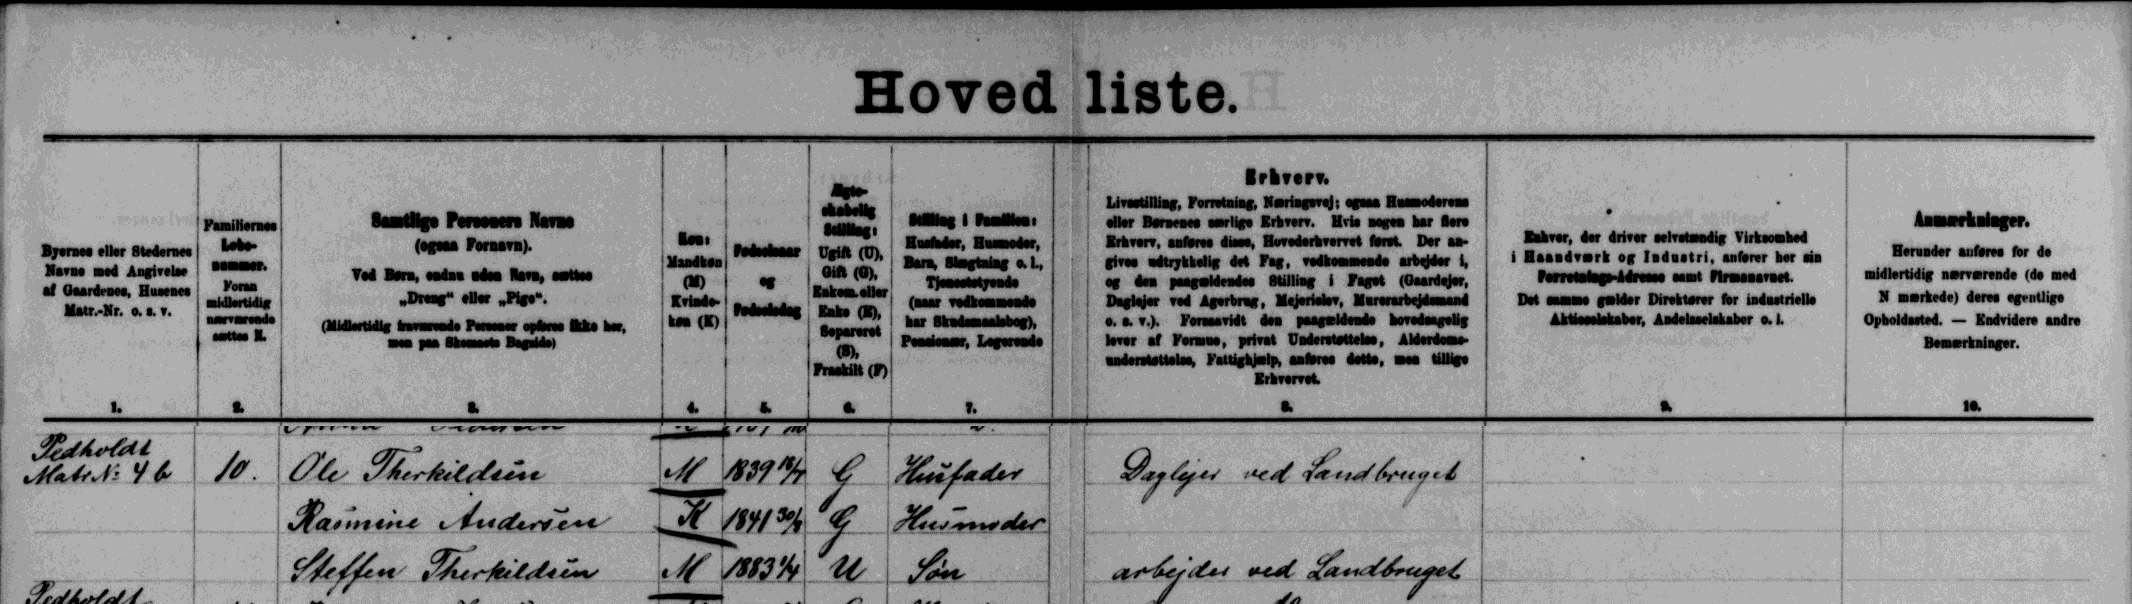 Hoved liste.
Byernes eller Stedernes
Navne med Angivelse
af Gaardenes, Husenes
Matr.-Nr. o. s. v.
1.
Familiernes
Løbe-
nummer.
Foran
midlertidig
nærværende
sættes N.
2.
Samtlige Personers Navne
(ogsaa Fornavn).
Ved Børn, endnu uden Navn, sættes
„Dreng“ eller „Pige“.
(Midlertidig fraværende Personer opføres ikke her,
men paa Skemaets Bagside)
3.
Køn:
Mandkøn
(M)
Kvinde-
køn (K)
4.
Fødselsaar
og
Fødselsdag
5.
Ægte-
skabelig
Stilling:
Ugift (U),
Gift (G),
Enkem. eller
Enke (E),
Separeret
(S),
Fraskilt (F)
6.
Stilling i Familien:
Husfader, Husmoder,
Barn, Slægtning o. l.,
Tjenestetyende
(naar vedkommende
har Skudsmaalsbog),
Pensionær, Logerende
7.
Erhverv.
Livsstilling, Forretning, Næringsvej; ogsaa Husmoderens
eller Børnenes særlige Erhverv. Hvis nogen har flere
Erhverv, anføres disse, Hovederhvervet først. Der an-
gives udtrykkelig det Fag, vedkommende arbejder i,
og den paagældendes Stilling i Faget (Gaardejer,
Daglejer ved Agerbrug, Mejerielev, Murerarbejdsmand
o. s. v.). Forsaavidt den paagældende hovedsagelig
lever af Formue, privat Understøttelse, Alderdoms-
understøttelse, Fattighjælp, anføres dette, men tillige
Erhvervet.
8.
Enhver, der driver selvstændig Virksomhed
i Haandværk og Industri, anfører her sin
Forretnings-Adresse samt Firmanavnet.
Det samme gælder Direktører for industrielle
Aktieselskaber, Andelsselskaber o. l.
9.
Anmærkninger.
Herunder anføres for de
midlertidig nærværende (de med
N mærkede) deres egentlige
Opholdssted. — Endvidere andre
Bemærkninger.
10.
Pedholdt
Matr № 4 b 10. Ole Therkildsen M 1839 18/7 G Husfader Daglejer ved Landbruget
Rasmine Andersen K 1841 30/8 G Husmoder
Steffen Therkildsen M 1883 1/4 U Søn arbejder ved Landbruget
Pedholdt